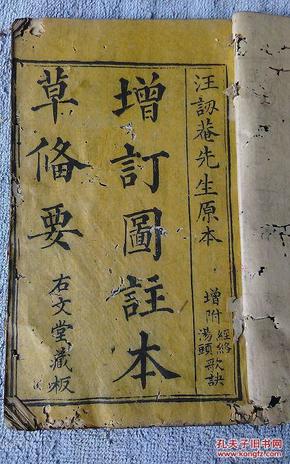 汪訒菴先生原本
增附
經絡
湯頭歌訣
增訂圖註本
草俻要
右文堂藏板
孔夫子旧书网